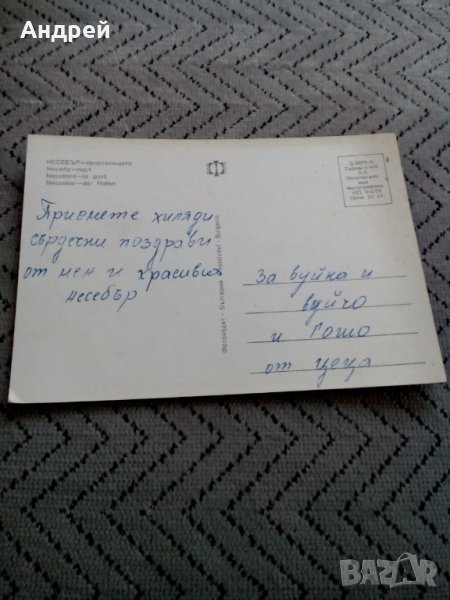 Андрей
НЕСЕБЪР—пристанището
Несебр—порт
Nessèbre—le port
Nessebar—der Hafen
Приемете хиляди
сърдечни поздрави
от мен и красивия
Несебър
Фотоиздат · България · Bulgarie
За вуйна и
вуйчо
и Гошо
от Цеца
BAZAR